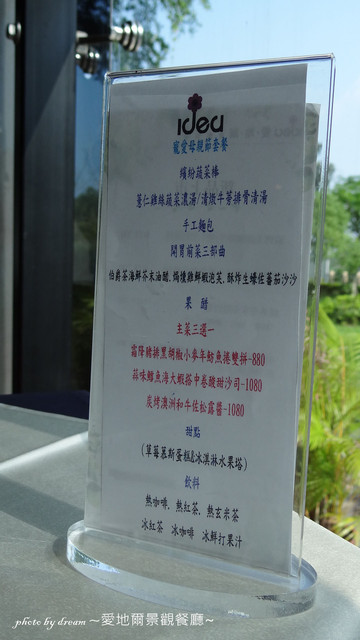 idea
寵愛母親節套餐
繽紛蔬菜棒
薏仁雞絲蔬菜濃湯/清燉牛蒡排骨清湯
手工麵包
開胃前菜三部曲
伯爵茶海鮮芥末油醋, 焗檀雞鮮蝦泡芙, 酥炸生蠔佐蕃茄沙沙
果醋
主菜三選一
霜降豬排黑胡椒小麥年魴魚捲雙拼-880
蒜味鱈魚海大蝦搭中卷酸甜沙司-1080
炭烤澳洲和牛佐松露醬-1080
甜點
(草莓慕斯蛋糕&冰淇淋水果塔)
飲料
熱咖啡, 熱紅茶, 熱玄米茶
冰紅茶 冰咖啡 冰鮮打果汁
photo by dream ~愛地爾景觀餐廳~